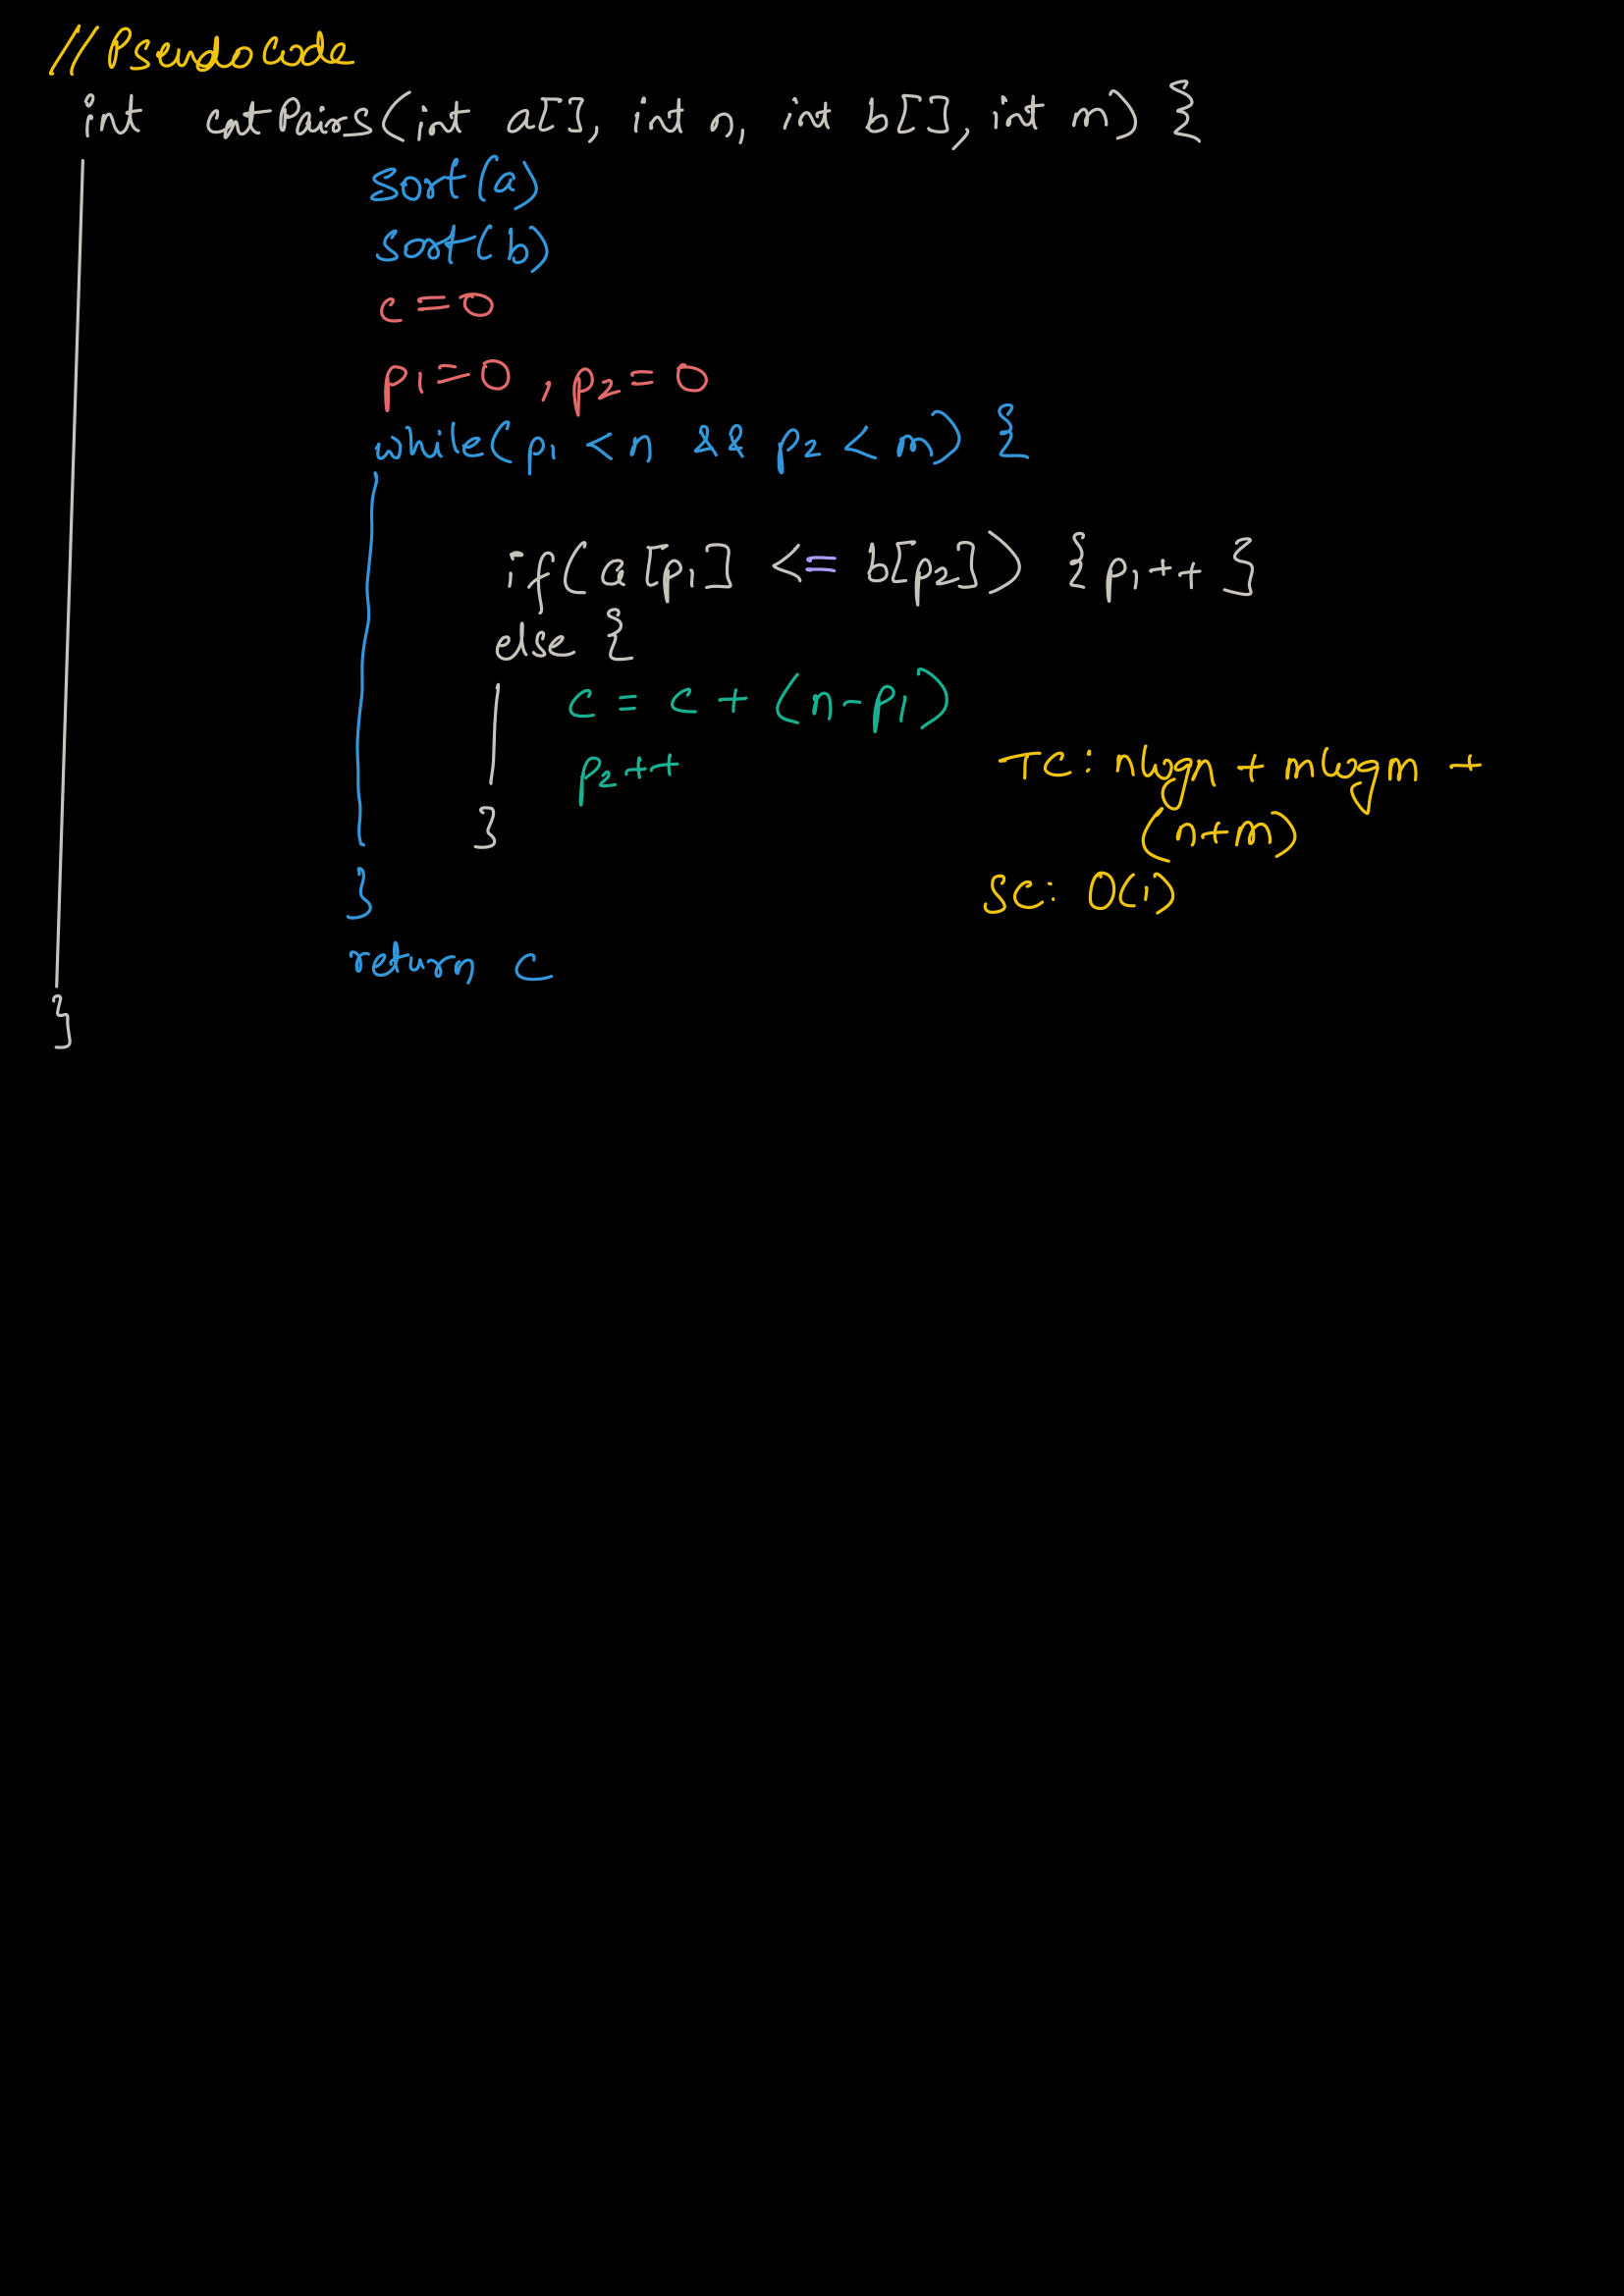 //Pseudocode
int cntPairs(int a[], int n, int b[], int m) {
sort(a)
sort(b)
c = 0
p1 = 0 , p2 = 0
while(p1 < n && p2 < m) {
if(a[p1] <= b[p2]) {p1++}
else {
c = c + (n-p1)
p2++
}
TC: nlogn + mlogm +
(n+m)
SC: O(1)
}
return c
}